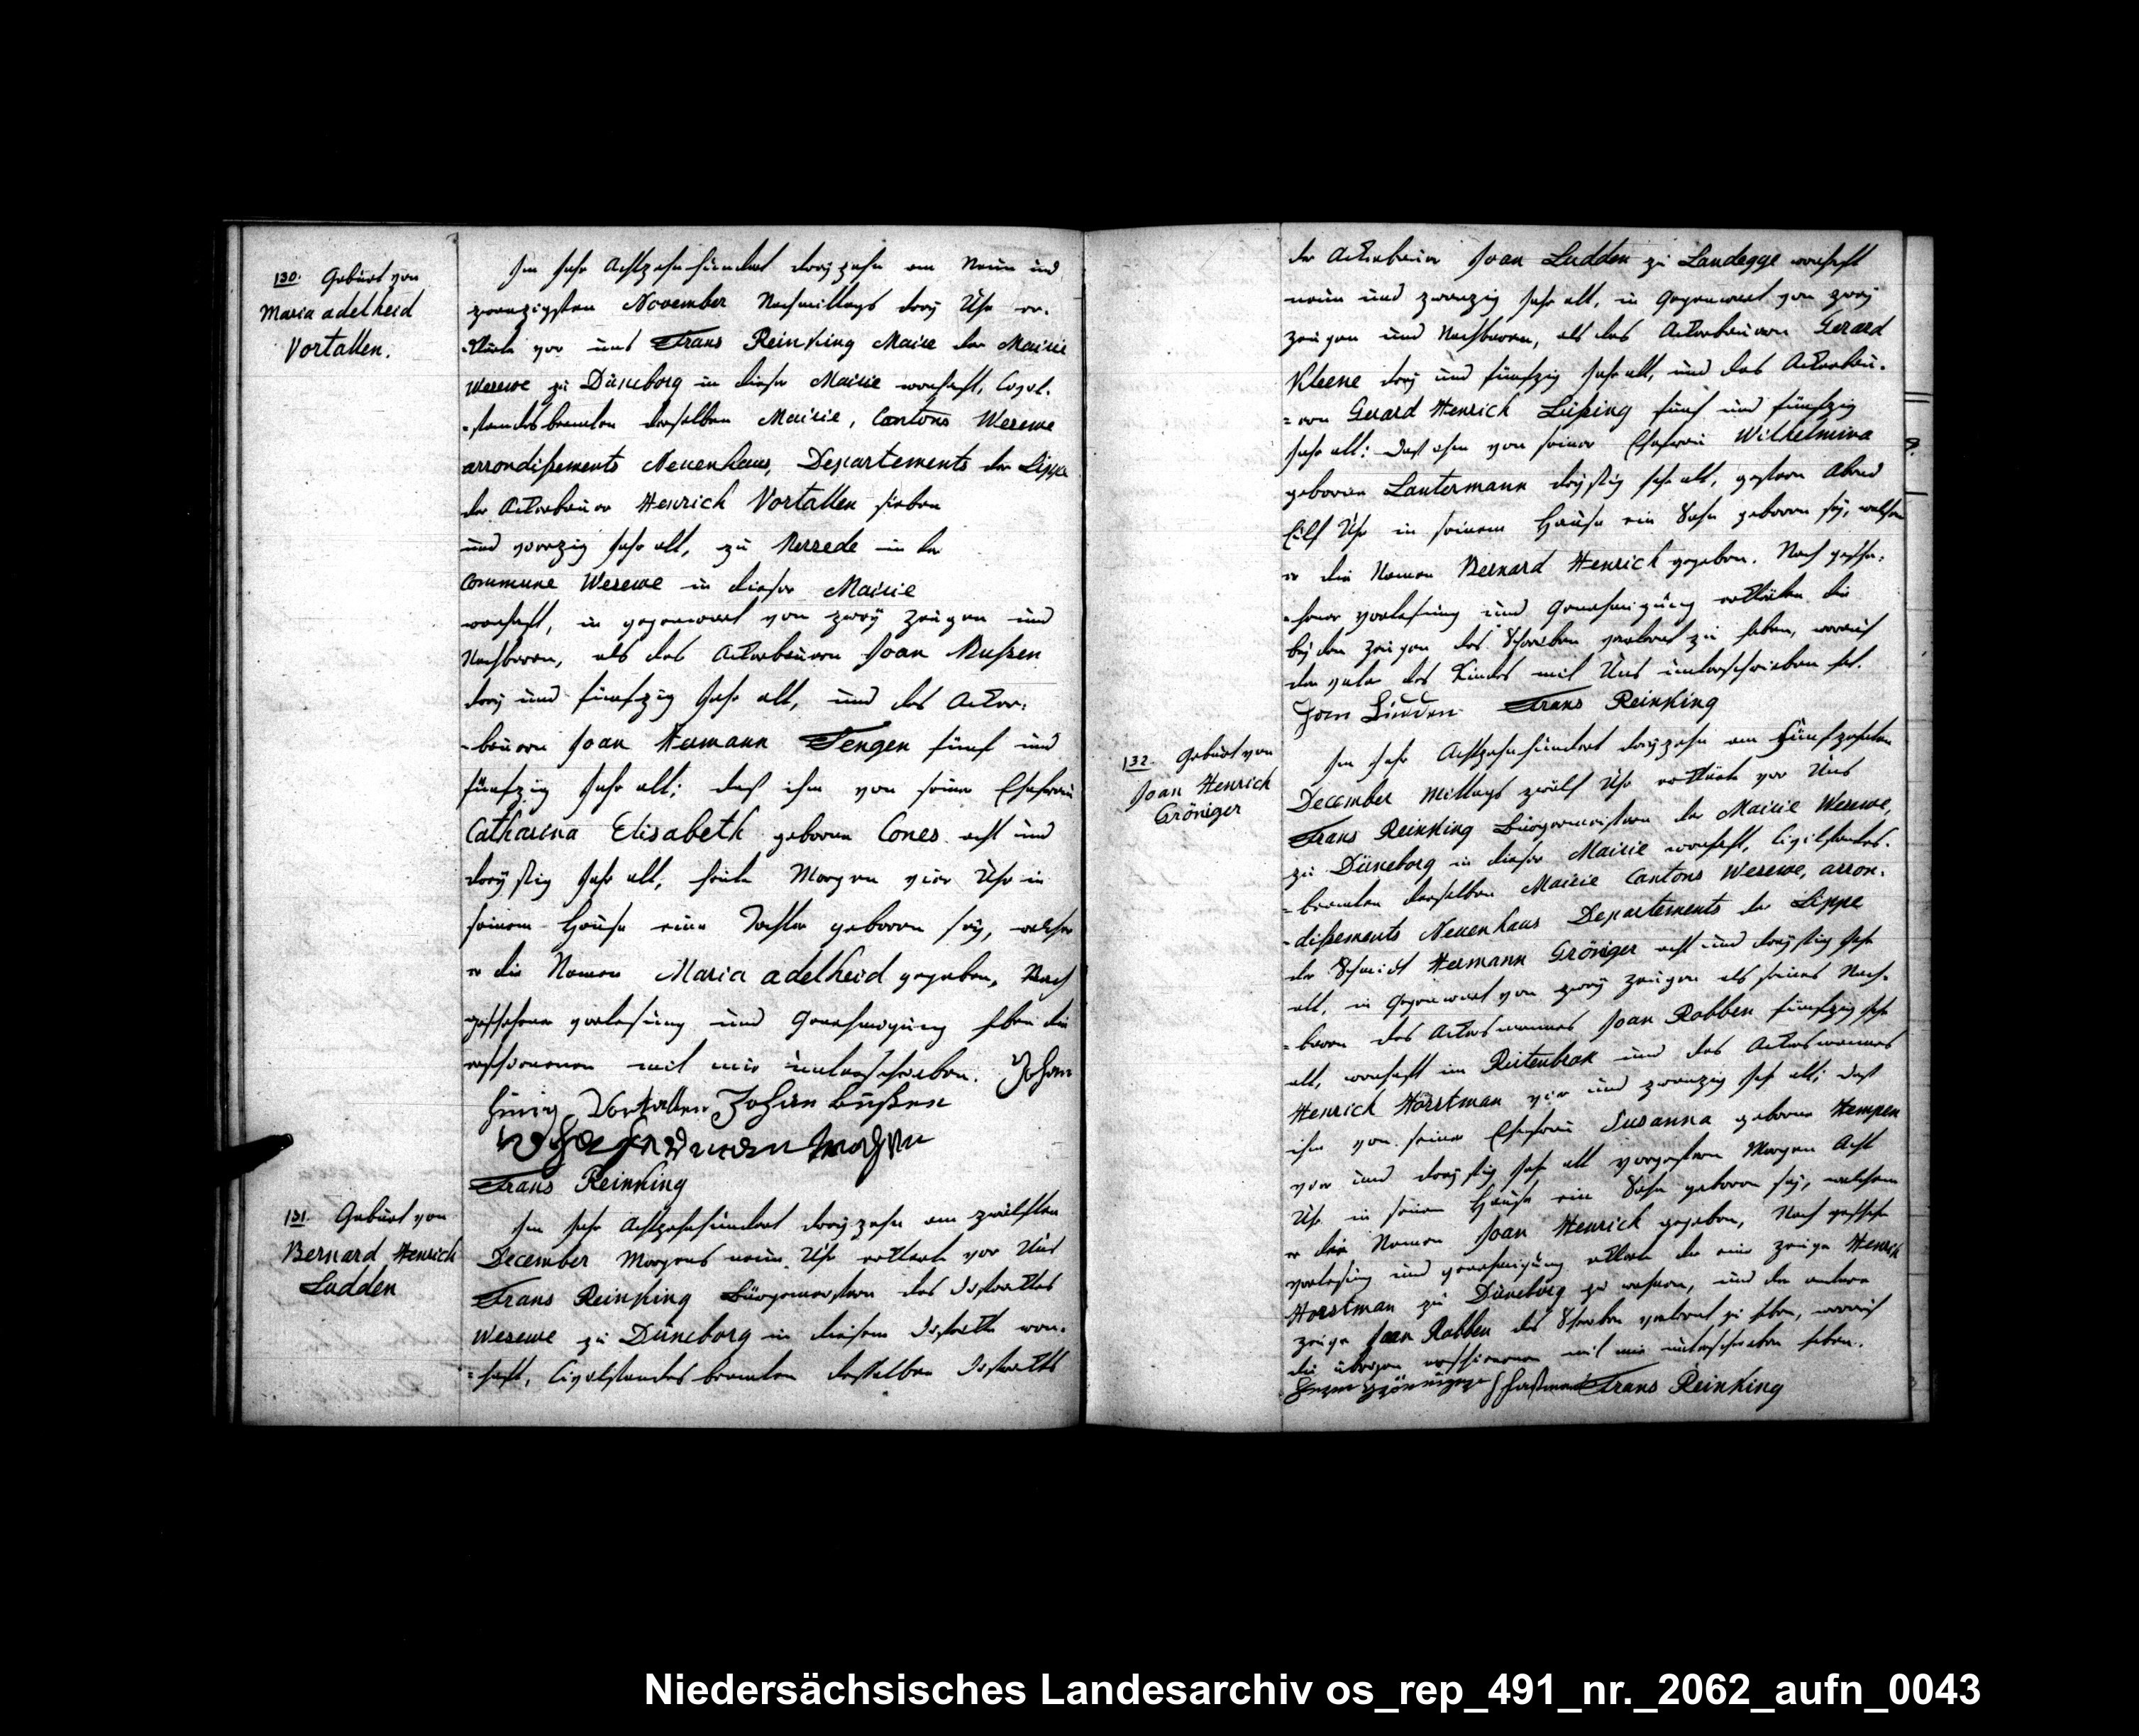 130. Geburt von
Maria adelheid
Vortallen.
Im Jahr Achtzehnhundert dreyzehn am Neun und
zwanzigsten November Nachmittags drey Uhr er-
-klärte vor uns Frans Reinking Maire der Mairie
Wesewe zu Düneborg in dieser Mairie wohnhaft, Civil-
-standsbeamten derselben Mairie, Cantons Wesewe
arrondißements Neuenhaus, Departements der Lippe
der Ackerbauer Henrich Vortallen sieben
und vierzig Jahr alt, zu in der
Commune Wesewe in dieser Mairie
wohnhaft, in gegenwart von zwey Zeugen und
Nachbaren, als des Ackerbauern Joan Bußen
drey und fünfzig Jahr alt, und des Acker-
-bauern Joan Hermann fünf und
fünfzig Jahr alt; daß ihm von seiner Ehefrau
Catharina Elisabeth geboren Cones acht und
dreyßig Jahr alt, heute Morgen vier Uhr in
seinem Hause eine Tochter geboren sey, welcher
er die Namen Maria adelheid gegeben, Nach
geschehener vorlesung und Genehmigung haben die
erschienenen mit mir unterschrieben. Johan
Hinrig Vortallen Johan bußen
Frans Reinking
131. Geburt von
Bernard Henrich
Ludden
Im Jahr Achtzehnhundert dreyzehn am zwölften
December Morgens neun Uhr erklärte vor Uns
Frans Reinking Bürgermeistern des Distriktes
Wesewe zu Düneborg in diesem Distrikte wohn-
-haft, Civilstandes beamten desselben Distrikts
der Ackerbauer Joan Ludden zu Landegge wohnhaft
neun und zwanzig Jahr alt, in Gegenwart von zwey
Zeugen und Nachbaren, als des Ackerbauern Gerard
Kleene drey und fünfzig Jahr alt, und des Ackerbau-
=ern Gerard Henrich Lüßing fünf und fünfzig
Jahr alt: daß ihm von seiner Ehefrau Wilhelmina
geboren Lautermann dreyßig Jahr alt, gestern Abend
Eilf Uhr in seinem Hause ein Sohn geboren sey, welchem
er die Namen Bernard Henrich gegeben. Nach gesche-
-hener vorlesung und Genehmigung erklärten die
beyden Zeugen des Schreiben unerfahren zu haben, worauf
der vater des Kindes mit Uns unterschrieben hat.
Joan Lüdden Frans Reinking
132. Geburt von
Joan Henrich
Gröniger
Im Jahr Achtzehnhundert dreyzehn am Fünfzehnten
December Mittags zwölf Uhr erklärte vor Uns
Frans Reinking Bürgermeistern der Mairie Wesewe,
zu Düneborg in dieser Mairie wohnhaft, Civilstandes-
-beamten derselben Mairie Cantons Wesewe, arron-
-dißements Neuenhaus Departements der Lippe
der Schmidt Hermann Gröniger acht und dreyßig Jahr
alt, in Gegenwart von zwey Zeugen als seines Nach-
-baren des Ackersmannes Joan Robben fünfzig Jahr
alt, wohnhaft im Rütenbrok und des Ackersmannes
Henrich Horstman vier und zwanzig Jahr alt; daß
ihm von seiner Ehefrau Susanna geborne Kempen
vier und dreyßig Jahr alt vorgestern Morgen Acht
Uhr in seinem Hause ein Sohn geboren sey, welchem
er die Namen Joan Henrich gegeben, Nach geschehener
vorlesung und genehmigung erklärte der eine Zeuge Henrich
Horstman zu Düneborg zu wohnen, und der andere
Zeuge Joan Robben des Schreiben zu haben, worauf
die übrigen erschienenen mit mir unterschrieben haben.
Frans Reinking
Niedersächsisches Landesarchiv os_rep_491_nr._2062_aufn_0043